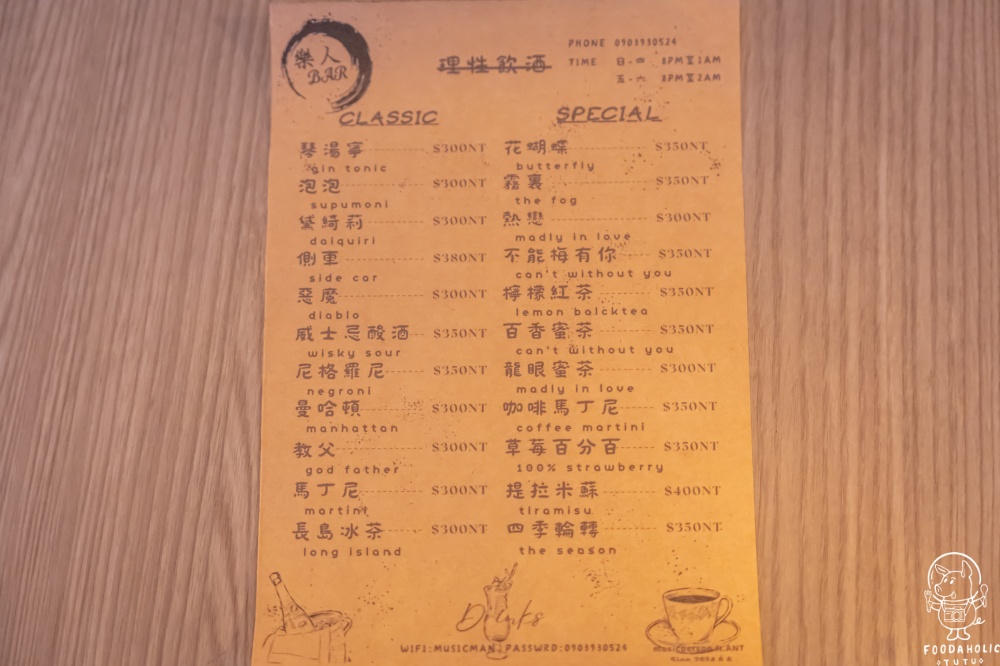 樂人
BAR
理性飲酒
PHONE 0903930524
TIME 日-四 8PM至1AM
五-六 8PM至2AM
CLASSIC
琴湯寧 $300NT
gin tonic
泡泡 $300NT
supumoni
黛綺莉 $300NT
daiquiri
側車 $380NT
side car
惡魔 $300NT
diablo
威士忌酸酒 $350NT
wisky sour
尼格羅尼 $350NT
negroni
曼哈頓 $300NT
manhattan
教父 $300NT
god father
馬丁尼 $300NT
martini
長島冰茶 $300NT
long island
SPECIAL
花蝴蝶 $350NT
butterfly
霧裏 $350NT
the fog
熱戀 $300NT
madly in love
不能梅有你 $350NT
can't without you
檸檬紅茶 $350NT
lemon balcktea
百香蜜茶 $350NT
can't without you
龍眼蜜茶 $300NT
madly in love
咖啡馬丁尼 $350NT
coffee martini
草莓百分百 $350NT
100% strawberry
提拉米蘇 $400NT
tiramisu
四季輪轉 $350NT
the season
Drinks
WIFI:MUSICMAN PASSWRD:0903930524
FOODAHOLIC
TUTU